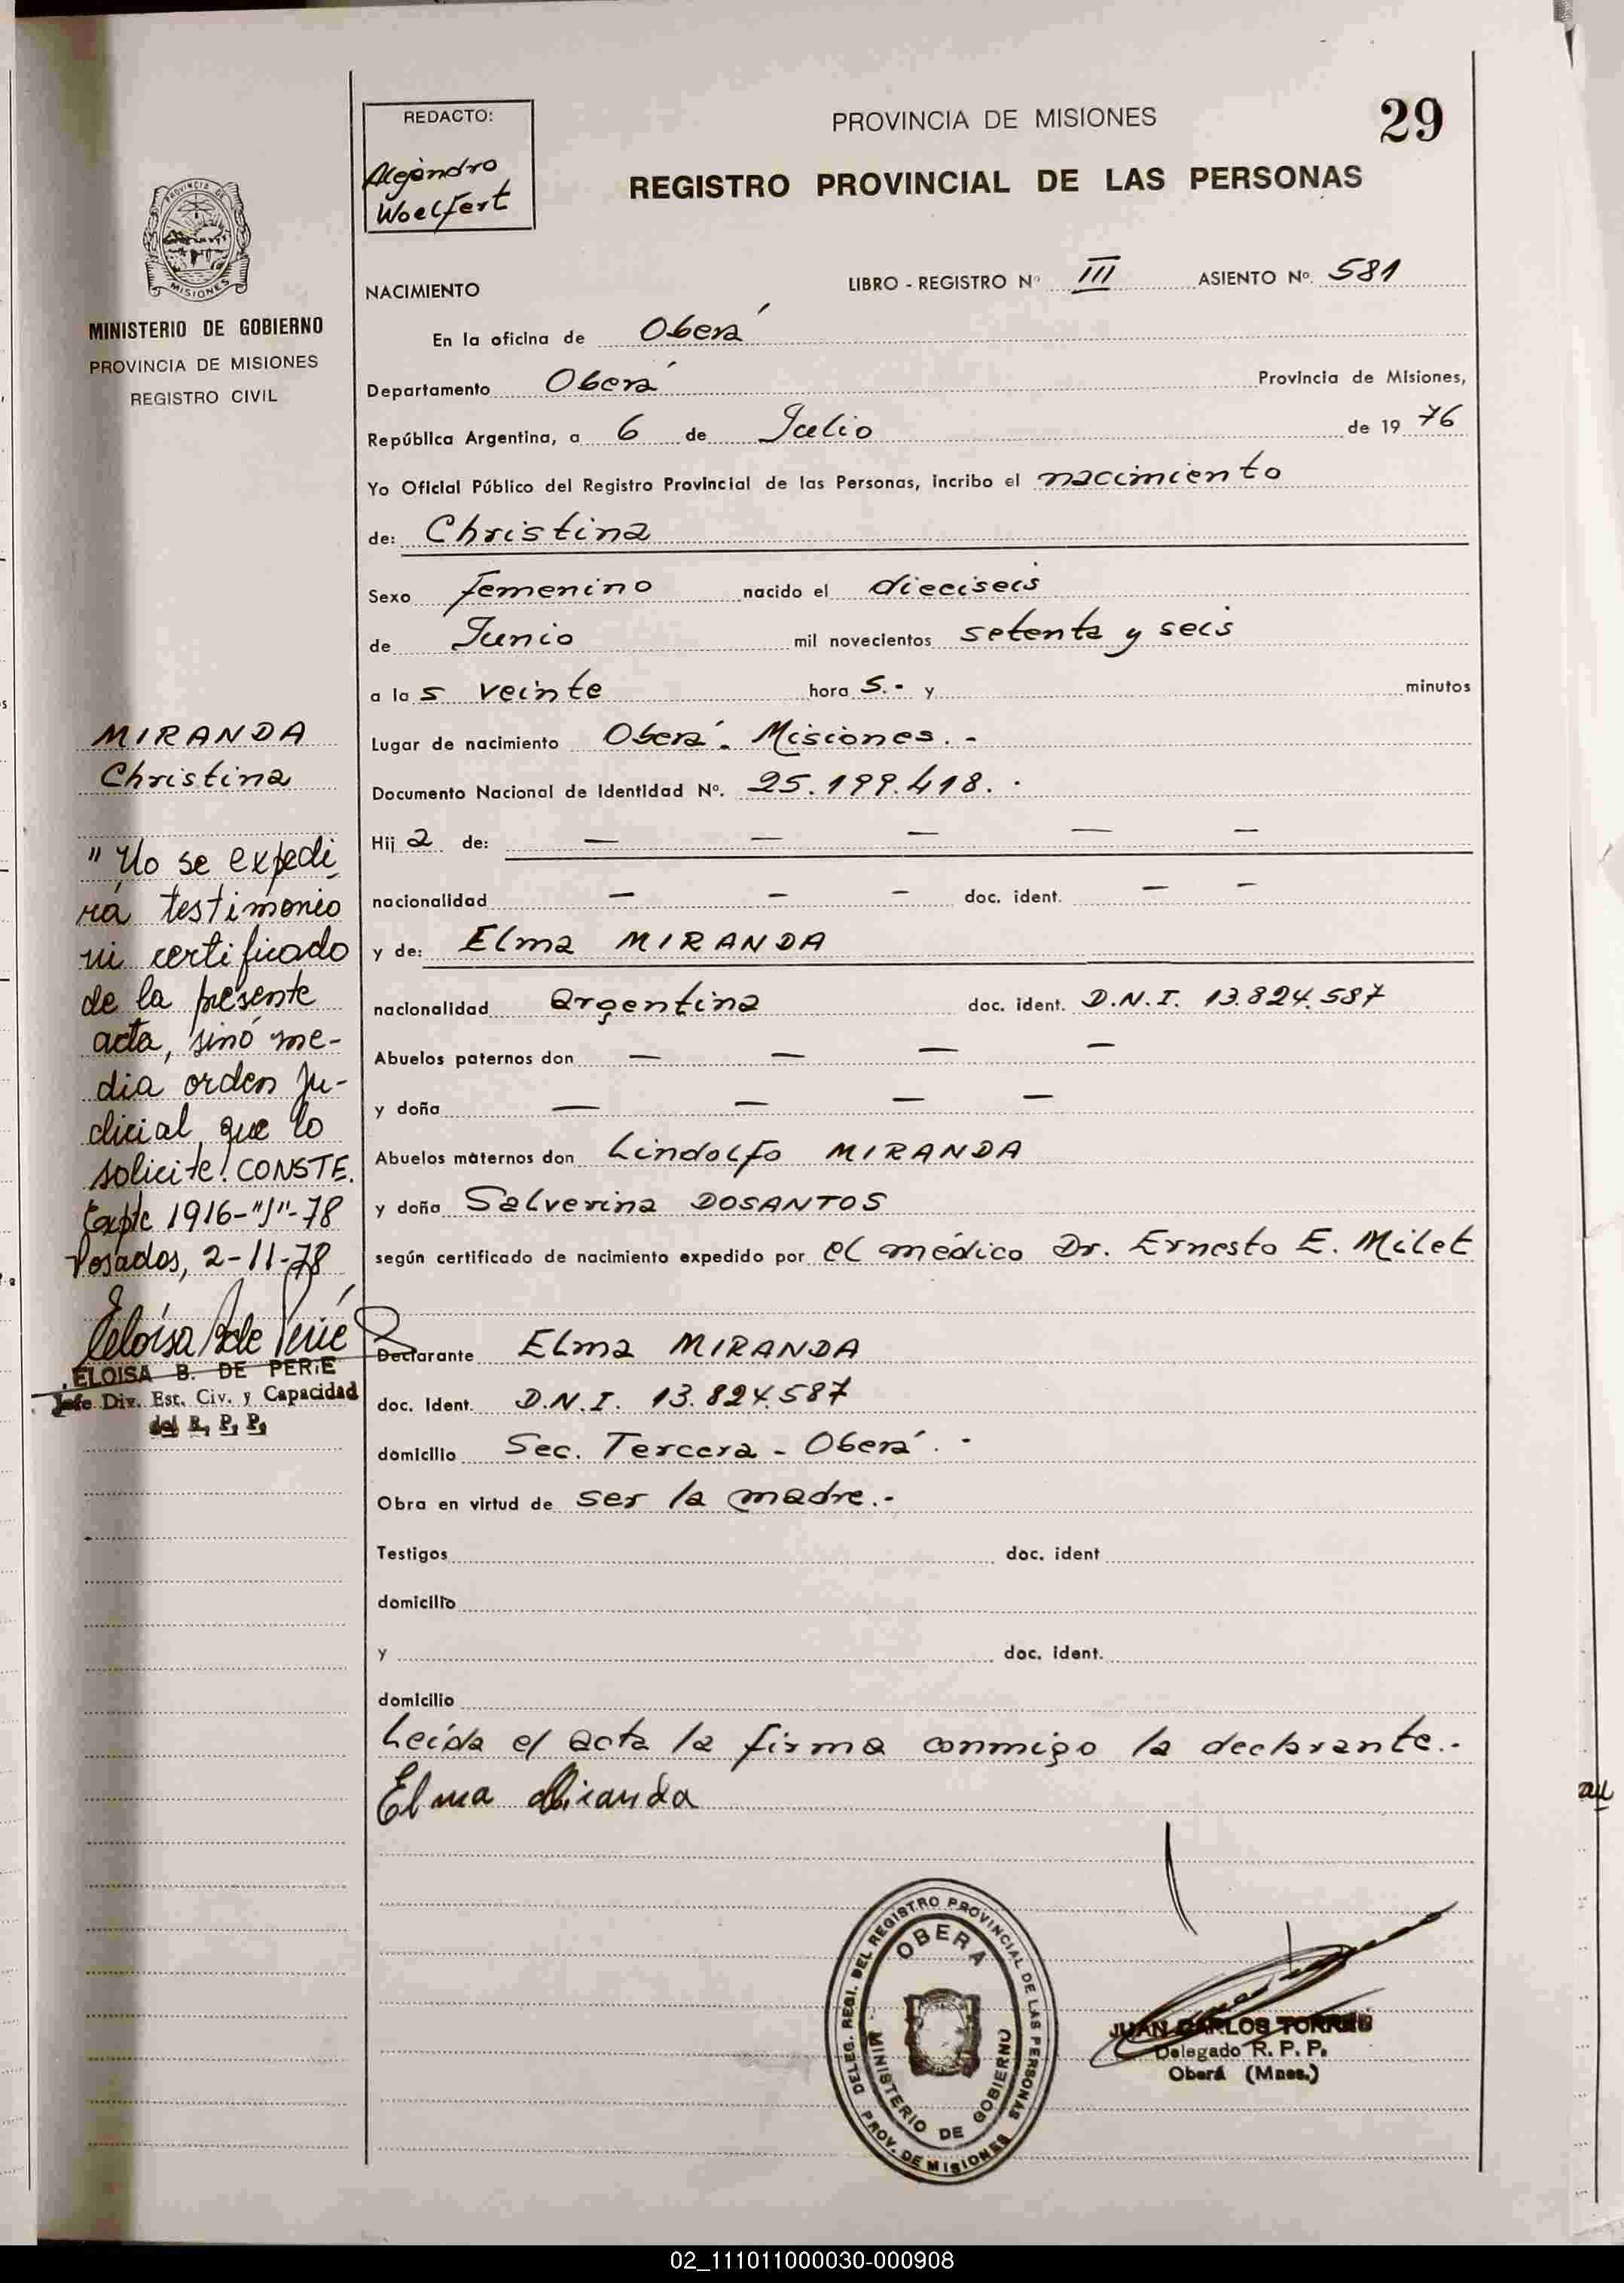 REDACTO:
Alejandro
Woelfert
PROVINCIA DE MISIONES
29
REGISTRO PROVINCIAL DE LAS PERSONAS
PROVINCIA DE
MISIONES
MINISTERIO DE GOBIERNO
PROVINCIA DE MISIONES
REGISTRO CIVIL
NACIMIENTO LIBRO - REGISTRO Nº III ASIENTO Nº. 581
En la oficina de Oberá
Departamento Oberá Provincia de Misiones,
República Argentina, a 6 de Julio de 19 76
Yo Oficial Público del Registro Provincial de las Personas, incribo el nacimiento
de: Christina
Sexo femenino nacido el dieciseis
de Junio mil novecientos setenta y seis
a las veinte hora s.- y minutos
Lugar de nacimiento Oberá. Misiones.-
Documento Nacional de Identidad Nº. 25.199.418.
Hija de: — — — — —
nacionalidad — — — doc. ident. — —
y de: Elma MIRANDA
nacionalidad Argentina doc. ident. D.N.I. 13.824.587
Abuelos paternos don — — — —
y doña — — — —
Abuelos maternos don Lindolfo MIRANDA
y doña Salverina DOSANTOS
según certificado de nacimiento expedido por el médico Dr. Ernesto E. Milet
Declarante Elma MIRANDA
doc. Ident. D.N.I. 13.824.587
domicilio Sec. Tercera - Oberá.-
Obra en virtud de ser la madre.-
Testigos doc. ident
domicilio
y doc. ident.
domicilio
Leída el acta la firma conmigo la declarante.-
Elma Miranda
MIRANDA
Christina
"No se expedi
rá testimonio
ni certificado
de la presente
acta, sinó me-
dia orden ju-
dicial, que lo
solicite! CONSTE.
Expte 1916-"J"-78
Posadas, 2-11-78
Eloísa B de Perié
ELOISA B. DE PERIE
Jefe Div. Est. Civ. y Capacidad
del R. P. P.
DELEG. REGI. DEL REGISTRO PROVINCIAL DE LAS PERSONAS
OBERA
MINISTERIO DE GOBIERNO
PROV. DE MISIONES
JUAN CARLOS TORRES
Delegado R. P. P.
Oberá (Mnes.)
02_111011000030-000908